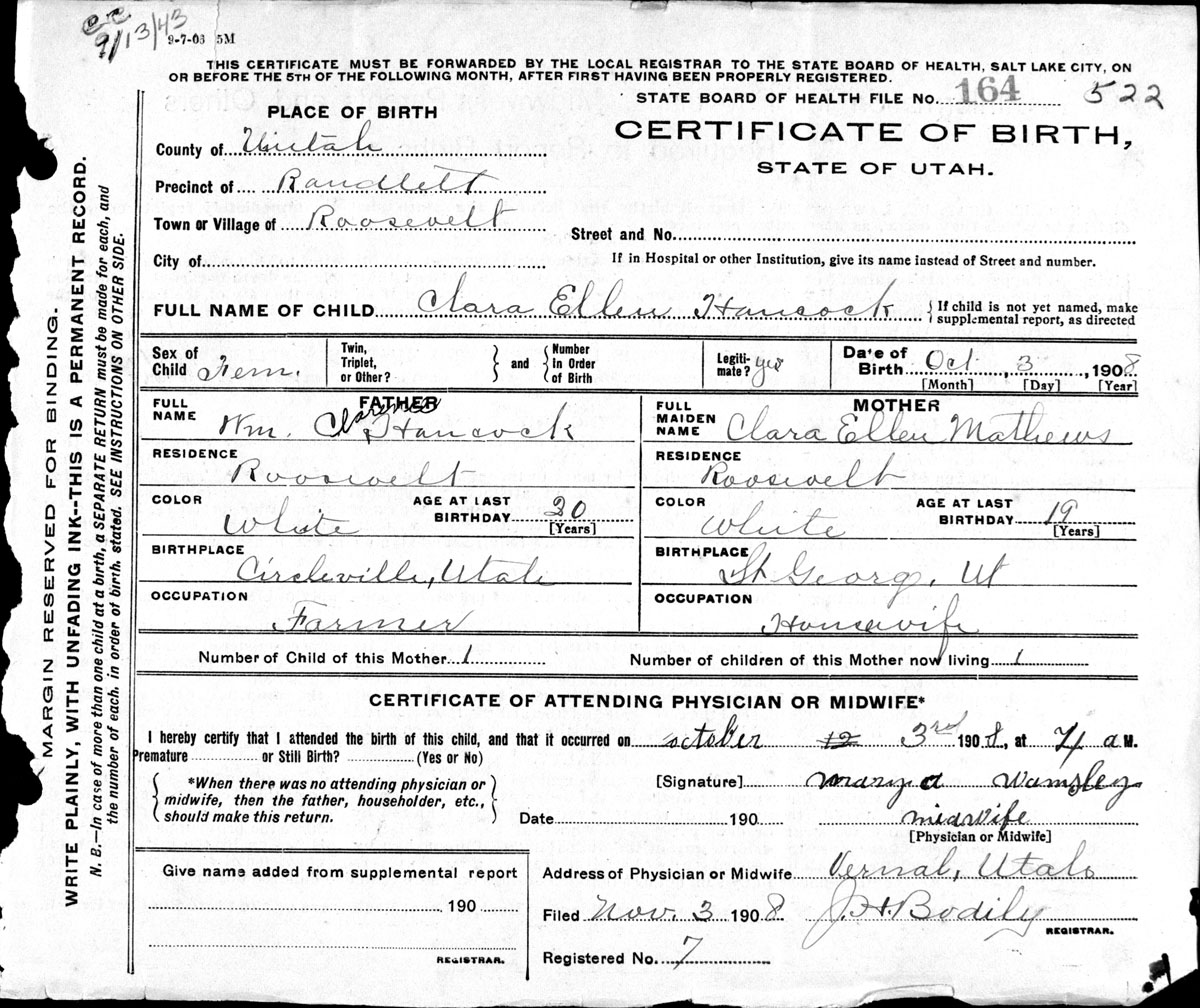 cc
9/13/43
9-7-06 5M
THIS CERTIFICATE MUST BE FORWARDED BY THE LOCAL REGISTRAR TO THE STATE BOARD OF HEALTH, SALT LAKE CITY, ON
OR BEFORE THE 5TH OF THE FOLLOWING MONTH, AFTER FIRST HAVING BEEN PROPERLY REGISTERED.
STATE BOARD OF HEALTH FILE No. 164 522
PLACE OF BIRTH
CERTIFICATE OF BIRTH,
STATE OF UTAH.
County of Uintah
Precinct of Randlett
Town or Village of Roosevelt
Street and No.
City of
If in Hospital or other Institution, give its name instead of Street and number.
FULL NAME OF CHILD Clara Ellen Hancock { If child is not yet named, make
supplemental report, as directed
Sex of
Child Fem.
Twin,
Triplet,
or Other?
} and {
Number
in Order
of Birth
Legiti-
mate? yes
Date of
Birth Oct. 3, 1908
[Month] [Day] [Year]
FATHER
FULL
NAME Wm. Clarence Hancock
RESIDENCE
Roosevelt
COLOR White
AGE AT LAST
BIRTHDAY 20
[Years]
BIRTHPLACE
Circleville, Utah
OCCUPATION
Farmer
MOTHER
FULL
MAIDEN
NAME Clara Ellen Mathews
RESIDENCE
Roosevelt
COLOR White
AGE AT LAST
BIRTHDAY 19
[Years]
BIRTHPLACE
St George, Ut
OCCUPATION
Housewife
Number of Child of this Mother 1
Number of children of this Mother now living 1
CERTIFICATE OF ATTENDING PHYSICIAN OR MIDWIFE*
I hereby certify that I attended the birth of this child, and that it occurred on october 12 3rd 1908, at 4 a M.
Premature or Still Birth? (Yes or No)
{ *When there was no attending physician or
midwife, then the father, householder, etc.,
should make this return. }
[Signature] mary a Wamsley
Date 190 midwife
[Physician or Midwife]
Give name added from supplemental report
190
REGISTRAR.
Address of Physician or Midwife Vernal, Utah
Filed Nov. 3 1908 J.H. Bodily
REGISTRAR.
Registered No. 7
MARGIN RESERVED FOR BINDING.
WRITE PLAINLY, WITH UNFADING INK--THIS IS A PERMANENT RECORD.
N. B.—In case of more than one child at a birth, a SEPARATE RETURN must be made for each, and
the number of each, in order of birth, stated. SEE INSTRUCTIONS ON OTHER SIDE.